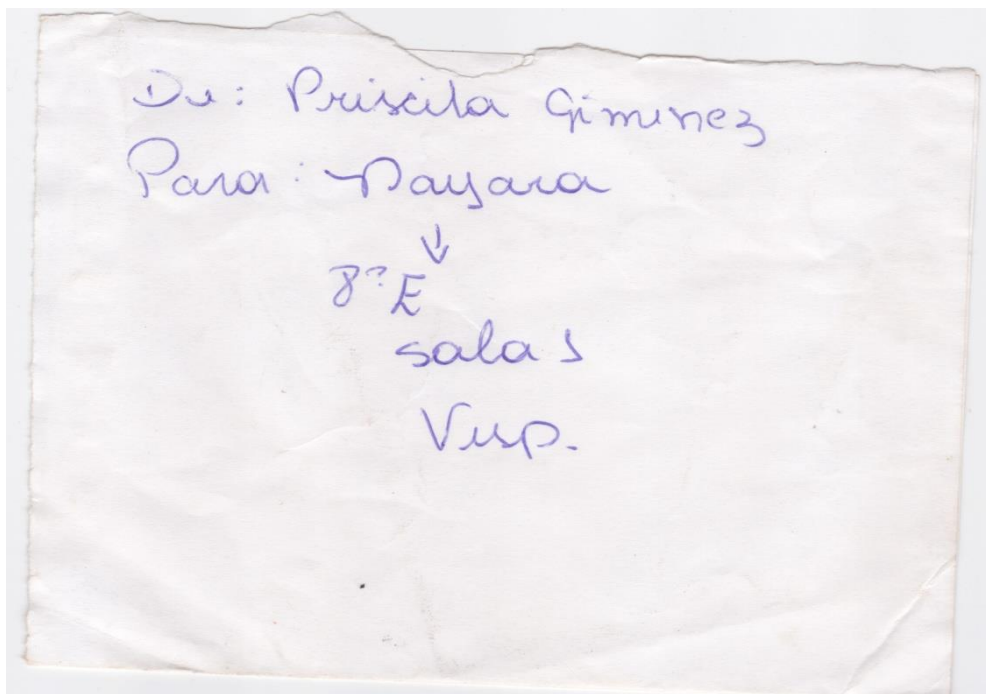 De: Priscila Gimenez
Para: Nayara
↓
8ª E
sala 1
Vesp.